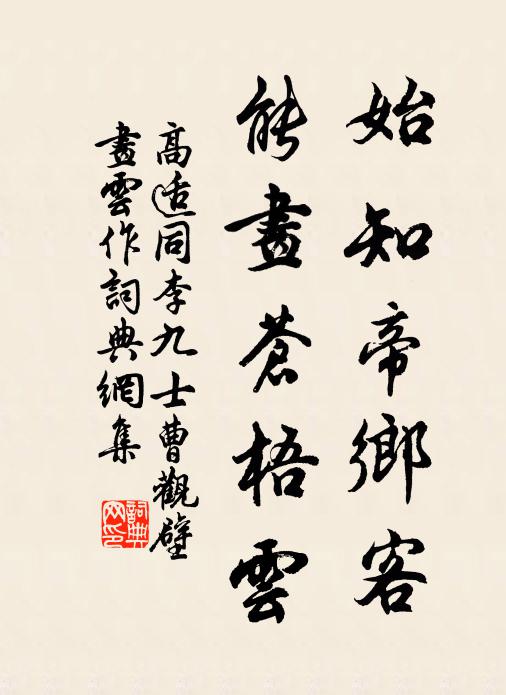 始知帝鄉客
能畫蒼梧雲
高适同李九士曹觀壁
畫雲作詞典網集
詞典
网印